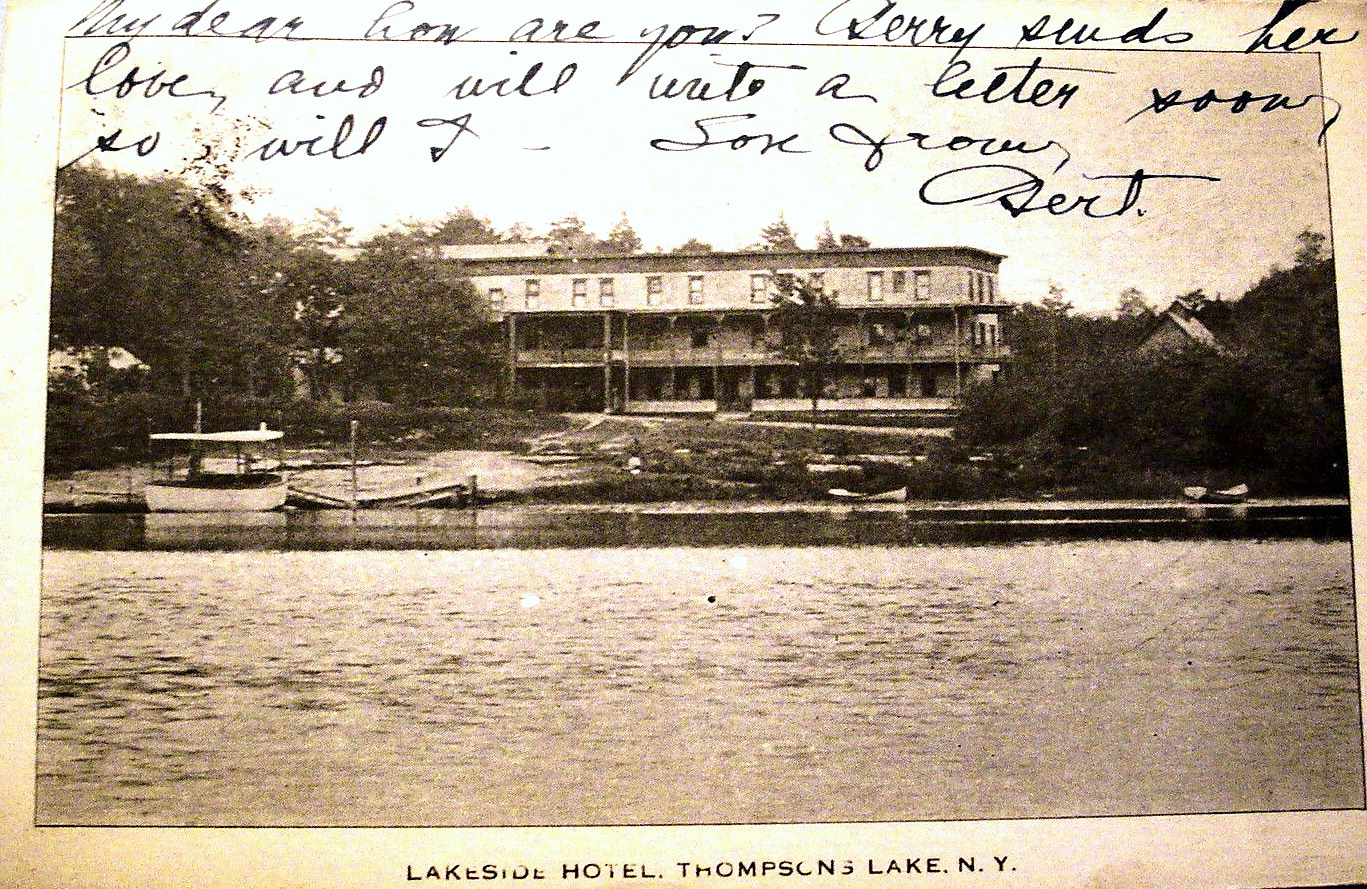 My dear how are you? Berry sends her
love, and will write a letter soon,
so will I – Love from,
Bert.
LAKESIDE HOTEL. THOMPSONS LAKE. N. Y.